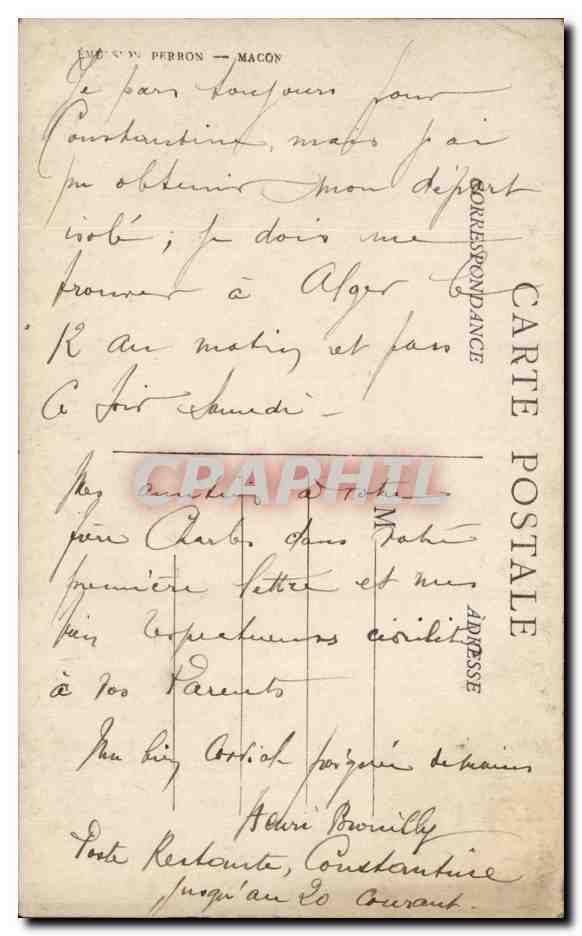 ÉMULSION PERRON — MACON
Je pars toujours pour
Constantine, mais j'ai
pu obtenir mon départ
isolé; je dois me
trouver à Alger le
12 au matin et pars
ce soir Samedi —
CORRESPONDANCE
CARTE POSTALE
CPAPHIL
Mes amitiés à votre
frère Charles dans votre
première lettre et mes
bien respectueuses civilités
à vos Parents
M
ADRESSE
Une bien cordiale poignée de mains
Henri Brouilly
Poste Restante, Constantine
jusqu'au 20 courant.